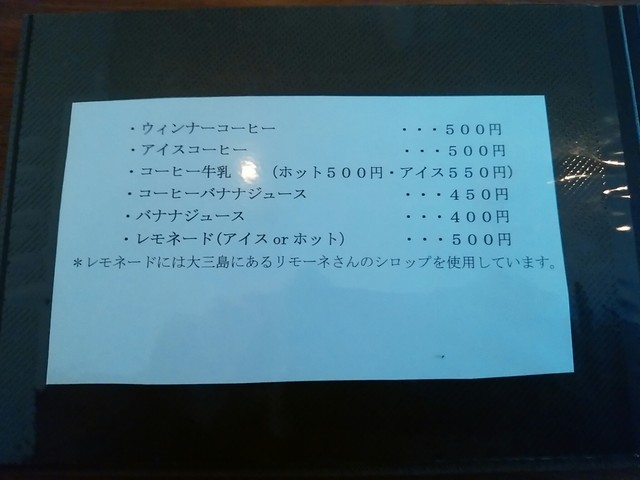 ・ウィンナーコーヒー ・・・５００円
・アイスコーヒー ・・・５００円
・コーヒー牛乳 （ホット５００円・アイス５５０円）
・コーヒーバナナジュース ・・・４５０円
・バナナジュース ・・・４００円
・レモネード（アイス or ホット） ・・・５００円
＊レモネードには大三島にあるリモーネさんのシロップを使用しています。